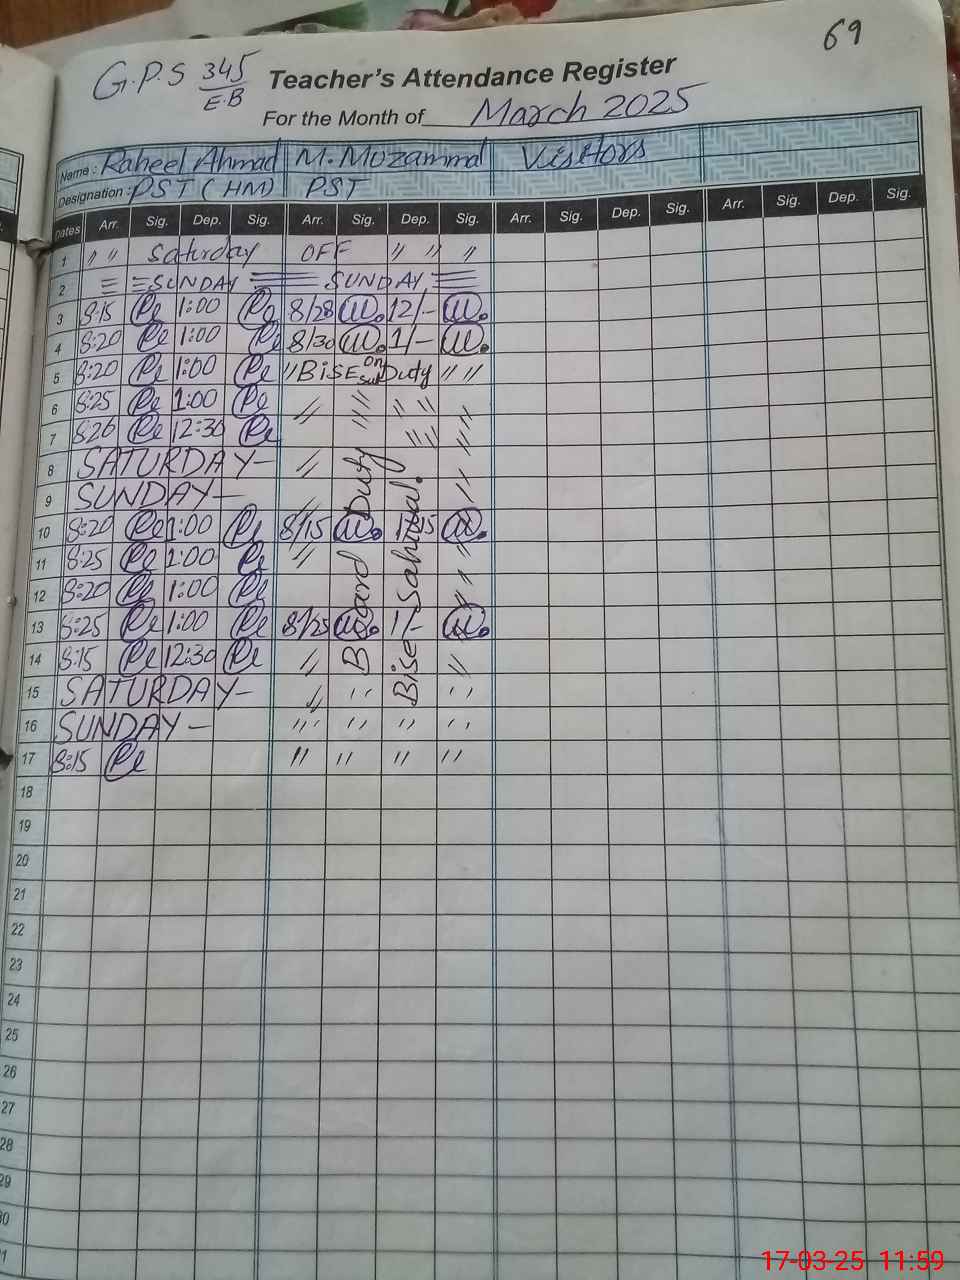 69
G.P.S 345/E.B Teacher's Attendance Register
For the Month of March 2025
Name : Raheel Ahmad M. Muzammal Visitors
Designation : PST (HM) PST
Dates Arr. Sig. Dep. Sig. Arr. Sig. Dep. Sig. Arr. Sig. Dep. Sig. Arr. Sig. Dep. Sig.
1 " " Saturday OFF " " "
2 SUNDAY SUNDAY
3 8:15 1:00 8/28 12/-
4 8:20 1:00 8/30 1/-
5 8:20 1:00 " BiSE on Duty " "
6 8:25 1:00 " " " "
7 8:26 12:30
8 SATURDAY - "
9 SUNDAY - "
10 8:20 1:00 8/15
11 8:25 1:00 "
12 8:20 1:00
13 8:25 1:00 8/25 1/-
14 8:15 12:30 " "
15 SATURDAY - " " "
16 SUNDAY - " " " "
17 8:15 " " " "
Board Duty
Bise Sahiwal.
18
19
20
21
22
23
24
25
26
27
28
29
30
31
17-03-25 11:59